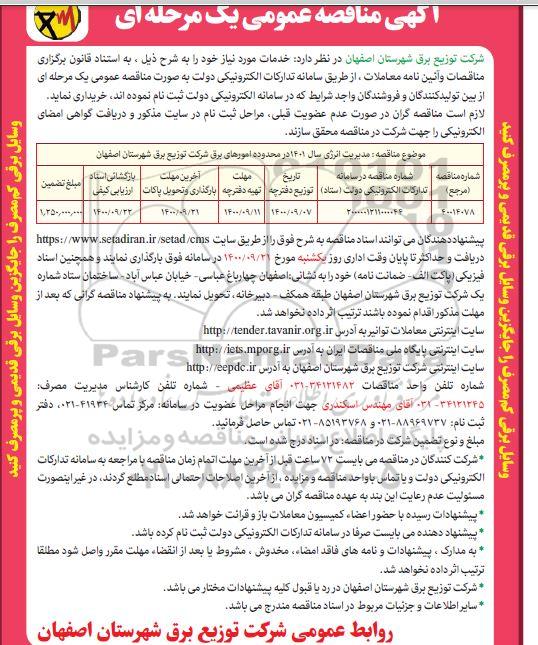 آگهی مناقصه عمومی یک مرحله ای
شرکت توزیع برق شهرستان اصفهان در نظر دارد: خدمات مورد نیاز خود را به شرح ذیل ، به استناد قانون برگزاری
مناقصات وآئین نامه معاملات ، از طریق سامانه تدارکات الکترونیکی دولت به صورت مناقصه عمومی یک مرحله ای
از بین تولیدکنندگان و فروشندگان واجد شرایط که در سامانه الکترونیکی دولت ثبت نام نموده اند، خریداری نماید.
لازم است مناقصه گران در صورت عدم عضویت قبلی، مراحل ثبت نام در سایت مذکور و دریافت گواهی امضای
الکترونیکی را جهت شرکت در مناقصه محقق سازند.
موضوع مناقصه : مدیریت انرژی سال ۱۴۰۱در محدوده امورهای برق شرکت توزیع برق شهرستان اصفهان
شماره مناقصه (مرجع) شماره مناقصه در سامانه تدارکات الکترونیکی دولت (ستاد) تاریخ توزیع دفترچه مهلت تهیه دفترچه آخرین مهلت بارگذاری وتحویل پاکات بازگشائی اسناد ارزیابی کیفی مبلغ تضمین
۴۰۰۱۴۰۷۸ ۲۰۰۰۰۰۱۲۱۱۰۰۰۰۴۴ ۱۴۰۰/۰۹/۰۷ ۱۴۰۰/۰۹/۱۱ ۱۴۰۰/۰۹/۲۱ ۱۴۰۰/۰۹/۲۲ ۱،۲۵۰،۰۰۰،۰۰۰
پیشنهاددهندگان می توانند اسناد مناقصه به شرح فوق را از طریق سایت https://www.setadiran.ir/setad/cms
دریافت و حداکثر تا پایان وقت اداری روز یکشنبه مورخ ۱۴۰۰/۰۹/۲۱ در سامانه فوق بارگذاری نمایند و همچنین اسناد
فیزیکی (پاکت الف - ضمانت نامه) خود را به نشانی:اصفهان چهارباغ عباسی - خیابان عباس آباد- ساختمان ستاد شماره
یک شرکت توزیع برق شهرستان اصفهان طبقه همکف - دبیرخانه ، تحویل نمایند. به پیشنهاد مناقصه گرانی که بعد از
مهلت مذکور اقدام نموده باشند ترتیب اثر داده نخواهد شد.
سایت اینترنتی معاملات توانیر به آدرس http://tender.tavanir.org.ir
سایت اینترنتی پایگاه ملی مناقصات ایران به آدرس http://iets.mporg.ir
سایت اینترنتی شرکت توزیع برق شهرستان اصفهان به آدرس http://eepdc.ir
شماره تلفن واحد مناقصات ۳۴۱۲۱۴۸۲-۰۳۱ آقای عظیمی - شماره تلفن کارشناس مدیریت مصرف:
۳۴۱۲۱۲۴۵-۰۳۱ آقای مهندس اسکندری جهت انجام مراحل عضویت در سامانه: مرکز تماس ۴۱۹۳۴-۰۲۱، دفتر
ثبت نام: ۸۸۹۶۹۷۳۷-۰۲۱ و ۸۵۱۹۳۷۶۸-۰۲۱ تماس حاصل فرمائید.
مبلغ و نوع تضمین شرکت در مناقصه: در اسناد درج شده است.
*شرکت کنندگان در مناقصه می بایست ۷۲ ساعت قبل از آخرین مهلت اتمام زمان مناقصه با مراجعه به سامانه تدارکات
الکترونیکی دولت و یا تماس باواحد مناقصه و مزایده ، از آخرین اصلاحات احتمالی اسناد مطلع گردند، در غیر اینصورت
مسئولیت عدم رعایت این بند به عهده مناقصه گران می باشد.
*پیشنهادات رسیده با حضور اعضاء کمیسیون معاملات باز و قرائت خواهد شد.
*پیشنهاد دهنده می بایست صرفا در سامانه تدارکات الکترونیکی دولت ثبت نام کرده باشد.
*به مدارک ، پیشنهادات و نامه های فاقد امضاء، مخدوش ، مشروط یا بعد از انقضاء مهلت مقرر واصل شود مطلقا
ترتیب اثر داده نخواهد شد.
*شرکت توزیع برق شهرستان اصفهان در رد یا قبول کلیه پیشنهادات مختار می باشد.
*سایر اطلاعات و جزئیات مربوط در اسناد مناقصه مندرج می باشد.
روابط عمومی شرکت توزیع برق شهرستان اصفهان
وسایل برقی کم مصرف را جایگزین وسایل برقی قدیمی و پرمصرف کنید
وسایل برقی کم مصرف را جایگزین وسایل برقی قدیمی و پرمصرف کنید